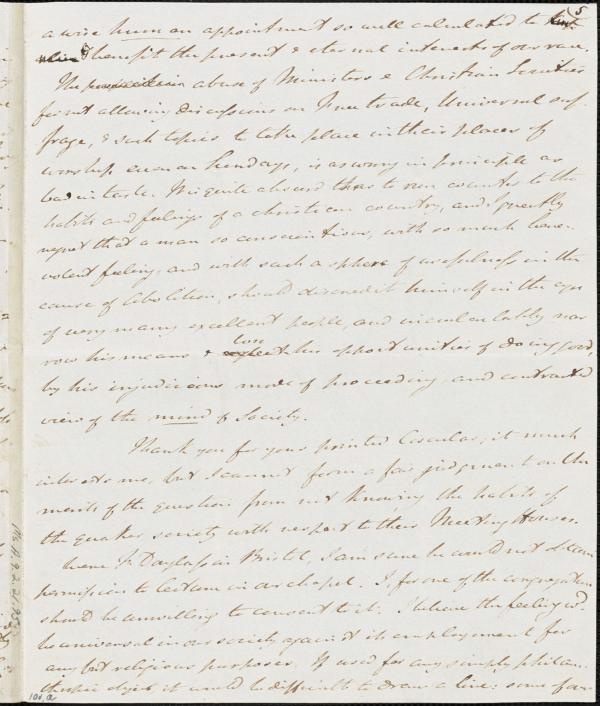 5
a wise human appointment so well calculated to
benefit the present & eternal interests of our race.
The abuse of Ministers & Christian Societies
for not allowing discussions on Free trade, Universal suf-
frage, & such topics to take place in their places of
worship even on Sundays, is as wrong in principle as
bad in taste. It is quite absurd thus to run counter to the
habits and feelings of a christian country, and I greatly
regret that a man so conscientious, with so much bene-
volent feeling, and with such a sphere of usefulness in the
cause of Abolition, should discredit himself in the eyes
of very many excellent people, and incalculably nar
row his means & lose his opportunities of doing good,
by his injudicious mode of proceeding, and contracted
view of the mind of Society.
Thank you for your printed Circular; it much
interests me, but I cannot form a fair judgment on the
merits of the question from not knowing the habits of
the quaker society with respect to their Meeting Houses.
Were F. Douglass in Bristol, I am sure he could not obtain
permission to lecture in our chapel. I, for one of the congregation
should be unwilling to consent to it. I believe the feeling wd.
be universal in our society against its employment for
any but religious purposes. If used for any simply philan-
thropic object, it would be difficult to draw a line: some of our
Ms.A.9.2.2